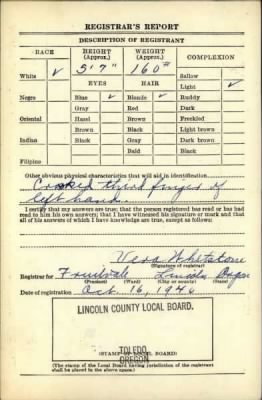 REGISTRAR'S REPORT
DESCRIPTION OF REGISTRANT
RACE HEIGHT (Approx.) WEIGHT (Approx.) COMPLEXION
5'7" 160#
White ✓ Sallow
EYES HAIR Light ✓
Negro Blue ✓ Blonde ✓ Ruddy
Gray Red Dark
Oriental Hazel Brown Freckled
Brown Black Light brown
Indian Black Gray Dark brown
Bald Black
Filipino
Other obvious physical characteristics that will aid in identification
Crooked third finger of
left hand.
I certify that my answers are true; that the person registered has read or has had
read to him his own answers; that I have witnessed his signature or mark and that
all of his answers of which I have knowledge are true, except as follows:
Vera Whetstone
(Signature of registrar)
Registrar for Fruitvale Lincoln
(Precinct) (Ward) (City or county) (State)
Date of registration Oct. 16, 1940
LINCOLN COUNTY LOCAL BOARD.
TOLEDO
OREGON
(STAMP OF LOCAL BOARD)
(The stamp of the Local Board having jurisdiction of the registrant
shall be placed in the above space.)